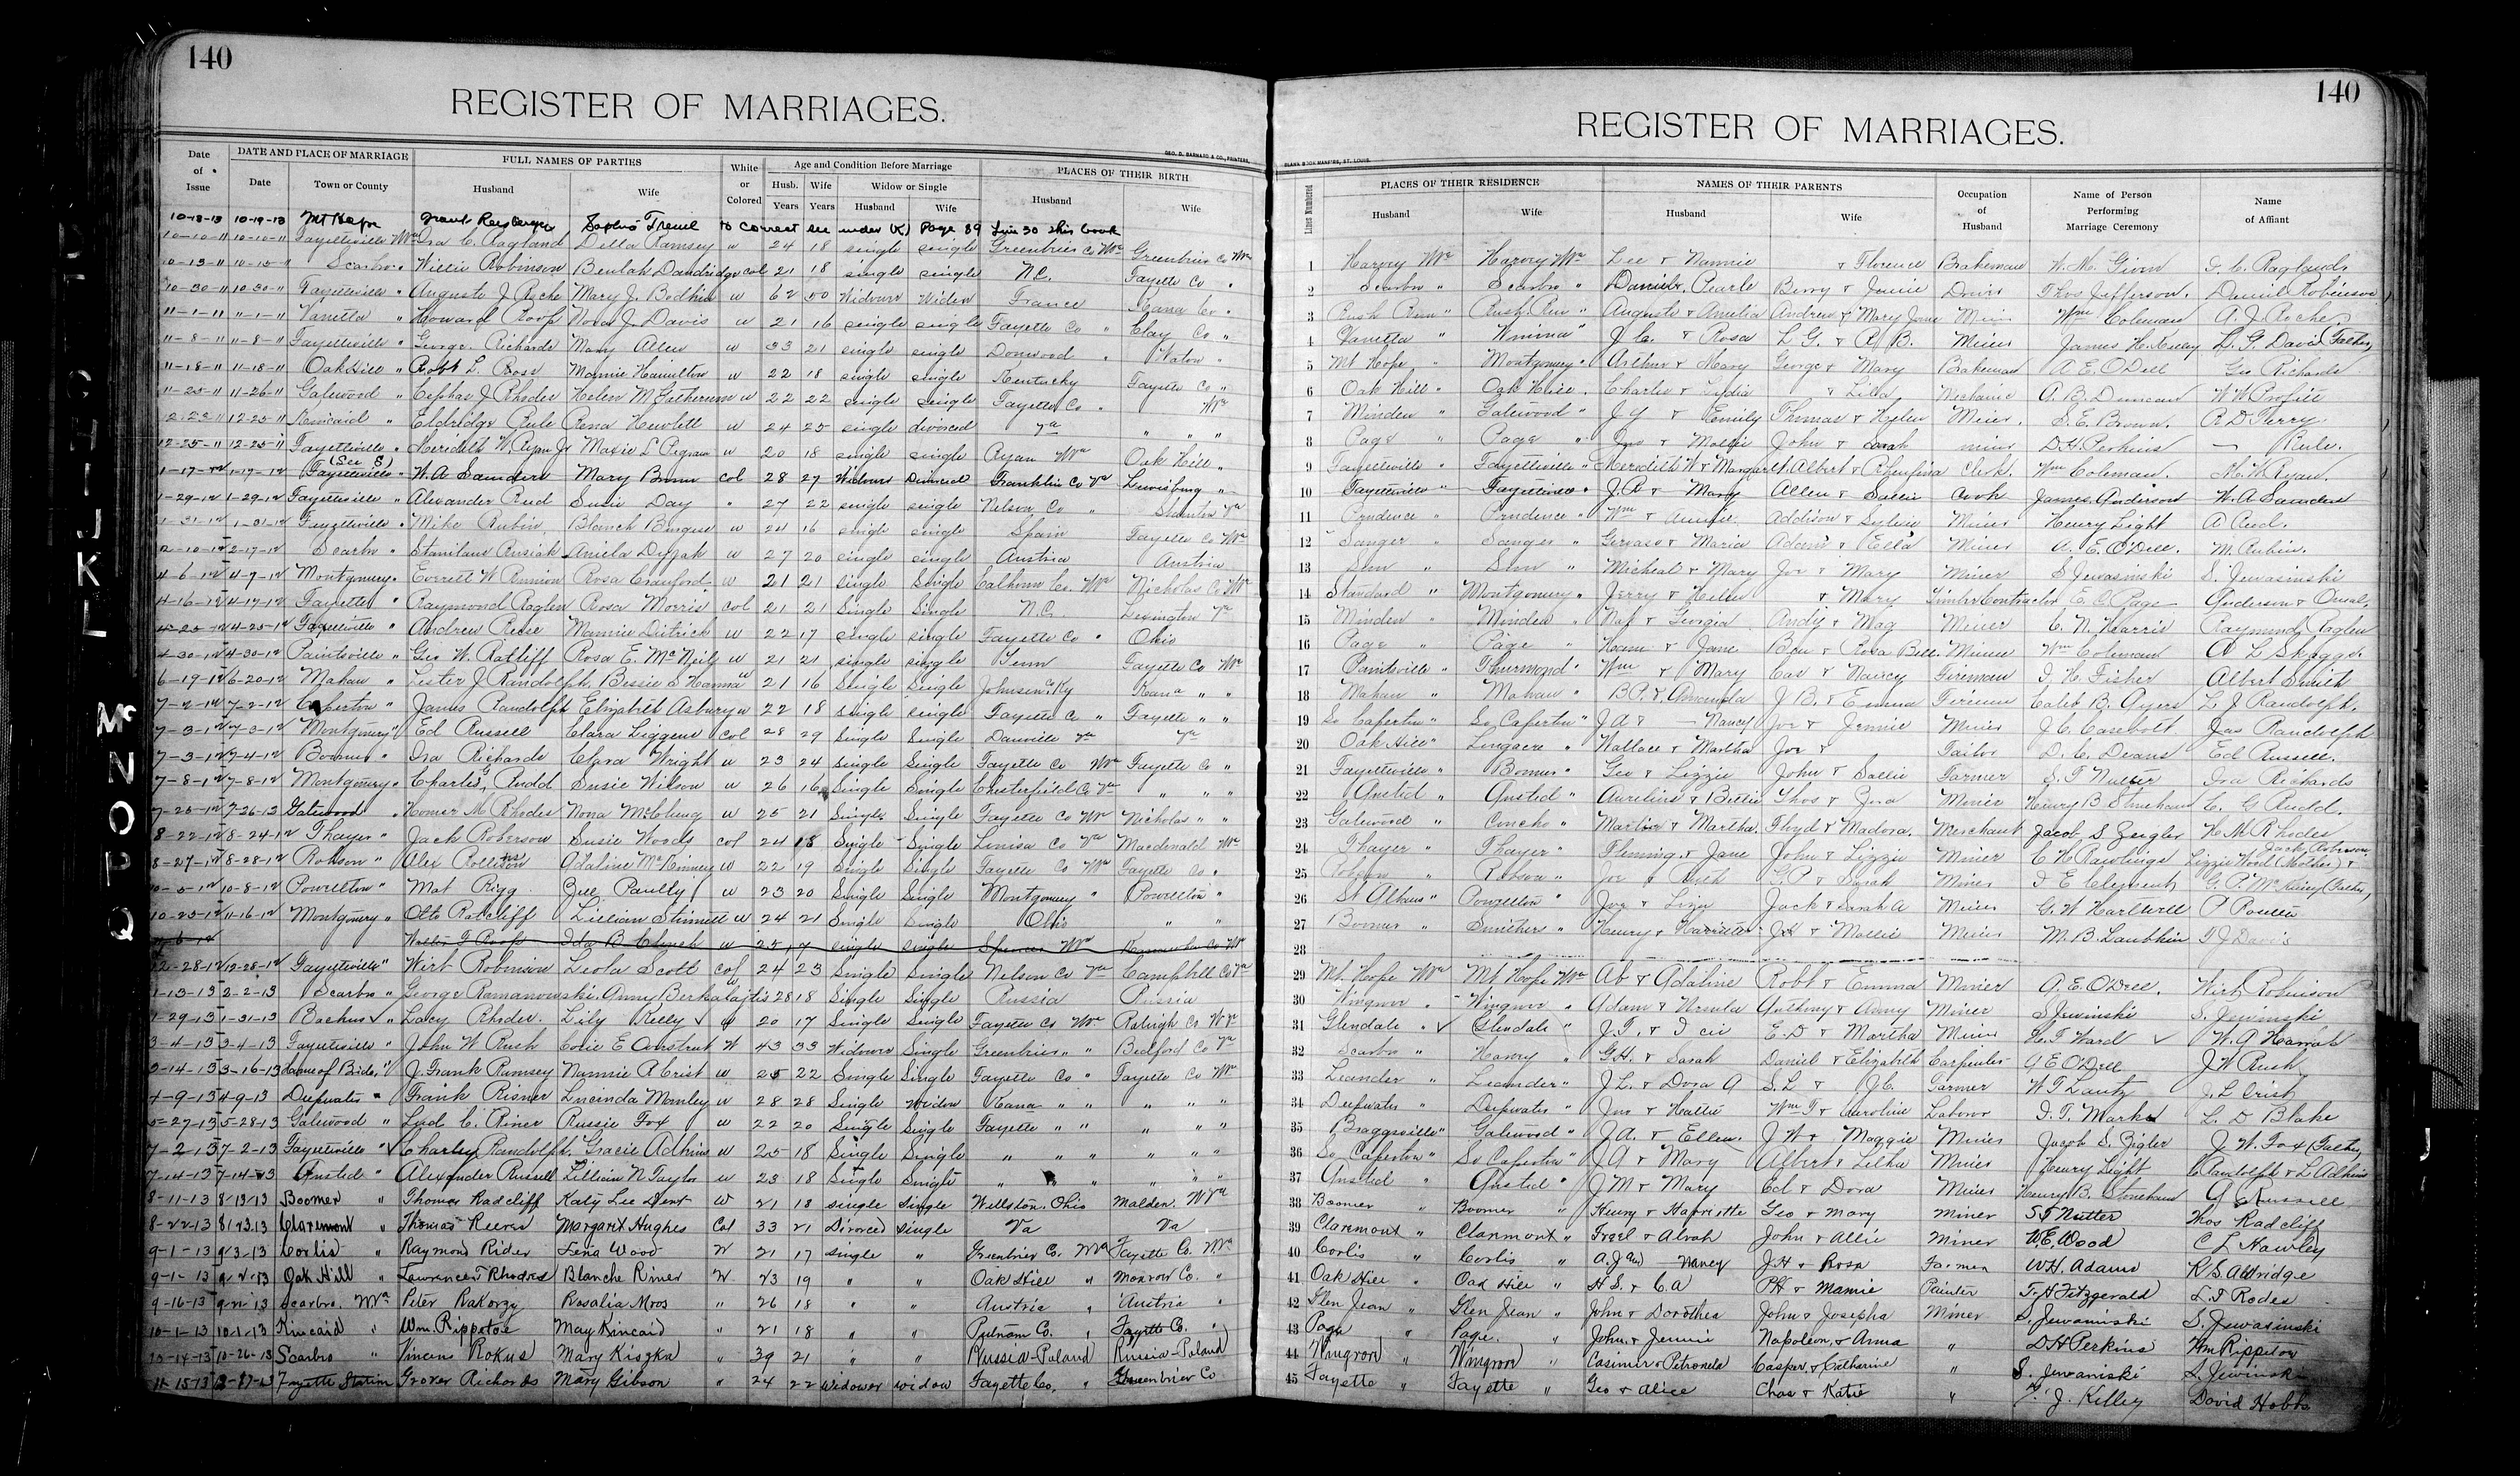 140
REGISTER OF MARRIAGES.
GEO. D. BARNARD & CO., PRINTERS,
Date of Issue
DATE AND PLACE OF MARRIAGE
FULL NAMES OF PARTIES
White or Colored
Age and Condition Before Marriage
PLACES OF THEIR BIRTH
Date Town or County Husband Wife Husb. Years Wife Years Widow or Single Husband Wife Husband Wife
10-18-13 10-19-13 Mt Hope Frank Sophia to correct see under (K) Page 89 Line 30 this book
10-10-11 10-10-11 Fayetteville Wva Ira C. Ragland Della Ramsey w 24 18 single single Greenbrier Co Wva Greenbrier Co Wva
10-13-11 10-15-11 Scarbro " Willie Robinson Beulah Dandridge col 21 18 single single N.C. Fayette Co "
10-30-11 10-30-11 Fayetteville " Auguste J Roche Mary J. Bodkin w 62 50 Widower Widow France Kana Co "
11-1-11 11-1-11 Vanetta " Howard Roop Nora J. Davis w 21 16 single single Fayette Co " Clay Co "
11-8-11 11-8-11 Fayetteville " George Richards Mary Allen w 33 21 single single Donwood "
11-18-11 11-18-11 Oak Hill " Robt L. Rose Mamie Hamilton w 22 18 single single Kentucky Fayette Co "
11-25-11 11-26-11 Gatewood " Cephas J Rhodes Helen M w 22 22 single single Fayette Co " Wva
12-23-11 12-25-11 Kincaid " Eldridge Rule Rena Hewlett w 24 25 single divorced Va " " "
12-25-11 12-25-11 Fayetteville " Meridith W. Ryan Jr Maxie L Pegram w 20 18 single single Ryan Wva Oak Hill "
(See S)
1-17-12 1-17-12 Fayetteville " W. A Saunders Mary Brown col 28 27 Widower Divorced Franklin Co Va Lewisburg "
1-29-12 1-29-12 Fayetteville " Alexander Reed Susie Day " 27 22 single single Nelson Co " Staunton Va
1-31-12 1-31-12 Fayetteville " Mike Rubin Blanch Burgess w 24 16 single single Spain Fayette Co Wva
2-10-12 2-17-12 Scarbro " Stanilaw Rusiak Aniela w 27 20 single single Austria Austria
4-6-12 4-7-12 Montgomery " Everett W Runion Rosa Crawford w 21 21 single Single Calhoun Co. Wva Nicholas Co Wva
4-16-12 4-17-12 Fayette " Raymond Raglen Rosa Morris col 21 21 Single Single N.C. Lexington Va
4-25-12 4-25-12 Fayetteville " Andrew Reese Mamie Ditrick w 22 17 single single Fayette Co " Ohio
4-30-12 4-30-12 Paintsville " Geo W. Ratliff Rosa E. McNeily w 21 21 single single Tenn Fayette Co Wva
6-19-12 6-20-12 Mahan " Lester J Randolph Bessie S Hanna w 21 16 Single Single Johnson Co Ky Kana " "
7-2-12 7-2-12 Caperton " James Randolph Elizabeth Asbury w 22 18 single Single Fayette Co " Fayette " "
7-3-12 7-3-12 Montgomery " Ed Russell Clara Liggens col 28 29 Single Single Danville Va Va
7-3-12 7-4-12 Boomer " Ira Richards Clara Wright w 23 24 Single Single Fayette Co Wva Fayette Co "
7-8-12 7-8-12 Montgomery " Charlie G. Rudd Susie Wilson w 26 16 Single Single Chesterfield Co Va " " "
7-25-12 7-26-13 Gatewood " Homer M Rhodes Nona McClung w 25 21 Single Single Fayette Co Wva Nicholas " "
8-22-12 8-24-12 Thayer " Jack Roberson Susie Woods col 24 18 Single Single Louisa Co Va Macdonald Wva
8-27-12 8-28-12 Robson " Alex Adaline McKinney w 22 19 Single Single Fayette Co Wva Fayette Co "
10-5-12 10-8-12 Powellton " Mat Rigg Paulty w 23 20 Single Single Montgomery " Powellton "
10-25-12 11-16-12 Montgomery " Otto Ratcliff Lillian Stinnett w 24 21 Single Single Ohio " "
Walter G Roop Ida B Clinch w 25 17 single single Spencer Wva Kanawha Co Wva
12-28-12 12-28-12 Fayetteville " Wirt Robinson Leola Scott col 24 23 Single Single Nelson Co Va Campbell Co Va
1-13-13 2-2-13 Scarbro " George Romanowski Anny w 28 18 Single Single Russia Russia
1-29-13 1-31-13 Bachus " Lacy Rhodes Lily Kelly w 20 17 Single Single Fayette Co Wva Raleigh Co WVa
3-4-13 3-4-13 Fayetteville " John W Rush E W 43 33 Widower Single Greenbrier " " Bedford Co Va
3-14-13 3-16-13 Home of Bride " J. Frank Ramsey Nannie R Crist w 25 22 Single Single Fayette Co " Fayette Co Wva
4-9-13 4-9-13 Deepwater " Frank Risner Lucinda Manley w 28 28 Single Widow Kana " " " " "
5-27-13 5-28-13 Gatewood " Lud C. Riner Russie Fox w 22 20 Single Single Fayette " " " " "
7-2-13 7-2-13 Fayetteville " Charley Randolph Gracie Adkins w 25 18 Single Single " " " " " "
7-14-13 7-14-13 Ansted " Alexander Russell Lillian N Taylor w 23 18 Single Single " " " " " "
8-11-13 8-13-13 Boomer " Thomas Radcliff Katy Lee Dent W 21 18 single single Wellston, Ohio Malden WVa
8-22-13 8-23-13 Claremont " Thomas Reeves Margaret Hughes Col 33 21 Divorced single Va Va
9-1-13 9-3-13 Corliss " Raymond Rider Lena Wood W 21 17 single " Greenbrier Co. Wva Fayette Co. Wva
9-1-13 9-2-13 Oak Hill " Lawrence T Rhodes Blanche Riner W. 23 19 " " Oak Hill " Monroe Co. "
9-16-13 9-21-13 Scarbro. Wva Peter Rakorzy Rosalia Mros " 26 18 " " Austria " Austria "
10-1-13 10-1-13 Kincaid " Wm. Rippetoe May Kincaid " 21 18 " " Putnam Co. " Fayette Co. "
10-14-13 10-26-13 Scarbro " Vincens Rokus Mary Kiszka " 39 21 " " Russia-Poland Russia-Poland
11-15-13 Fayette Station Grover Richards Mary Gibson " 24 22 widower widow Fayette Co. " Greenbrier Co
140
REGISTER OF MARRIAGES.
BLANK BOOK MAKERS, ST. LOUIS.
Lines Numbered
PLACES OF THEIR RESIDENCE
NAMES OF THEIR PARENTS
Occupation of Husband
Name of Person Performing Marriage Ceremony
Name of Affiant
Husband Wife Husband Wife
1 Harvey Wva Harvey Wva Lee & Nannie & Florence Brakeman W. M. Given I. C. Ragland
2 Scarbro " Scarbro " Daniel & Pearle Berry & Jennie Driver Thos Jefferson. Daniel Robinson
3 Rush Run " Rush Run " Auguste & Amelia Andrew & Mary Jane Miner Wm Coleman A. J. Roche
4 Vanetta " Winina " J C. & Rosa L G. & R. B. Miner James H. Kelley L. G. Davis (Father)
5 Mt Hope " Montgomery " Arthur & Mary George & Mary Brakeman A E O'Dell Geo Richards
6 Oak Hill " Oak Hill " Charlie & Lydia & Lilla Mechanic A. B. Duncan W W Profitt
7 Minden " Gatewood " J Y & Emily Thomas & Helen Miner. S. E. Brown. R D Terry
8 Page " Page " Jno & Mollie John & Sarah miner D. H. Perkins — Rule.
9 Fayetteville " Fayetteville " Meridith W & Margaret Albert & Rhenfina Clerk. Wm Coleman. M. W Ryan.
10 Fayetteville " Fayetteville " J. A & Mary Allen & Sallie Cook James Anderson W. A Saunders
11 Prudence " Prudence " Wm & Annie Addison & Sylvia Miner Henry Light A Reed.
12 Sanger " Sanger " Gervaso & Maria Adam & Ella Miner A. E. O'Dell. M. Rubin.
13 Sun " Sun " Micheal & Mary Joe & Mary Miner S Jewasinski S. Jewasinski
14 Standard " Montgomery " Jerry & Hellen & Mary Timber Contractor E. C. Page Anderson &
15 Minden " Minden " Nat & Georgia Andy & Mag Miner C. N. Harris Raymond Raglen
16 Page " Page " Henri & Jane Ben & Rosa Bell Miner Wm Coleman A L Skaggs.
17 Paintsville " Thurmond " Wm & Mary Cas & Nancy Fireman I. H. Fisher Albert Smith
18 Mahan " Mahan " B P. & Amanda J B. & Emma Fireman Caleb B. Ayers L. J Randolph.
19 So Caperton " So Caperton " J A & Nancy Joe & Jennie Miner J. C. Casebolt Jas Randolph
20 Oak Hill " Longacre " Wallace & Martha Joe & Tailor D. C. Deans Ed Russell.
21 Fayetteville " Boomer " Geo & Lizzie John & Sallie Farmer S. F Nutter Ira Richards
22 Ansted " Ansted " Aurelius & Bettie Thos & Miner Henry B Stoneham C. G Rudd.
23 Gatewood " Concho " Martin & Martha Floyd & Madora. Merchant Jacob S Zeigler H. M Rhodes
24 Thayer " Thayer " Fleming & Jane John & Lizzie Miner C H Rawlings Jack Roberson Lizzie Wood (Mother) &
25 Robson " Robson " Joe & Ruth G. P. & Sarah Miner I E Clements G. P. McKiney (Father)
26 St Albans " Powellton " Joe & Lizzy Jack & Sarah A Miner G. W Hartwell P Poulty
27 Boomer " Smithers " Henry & Harriette J. H & Mollie Miner M. B. Laubkin T J Davis
28
29 Mt. Hope Wva Mt Hope Wva Ab & Adaline Robt & Emma Miner A. E. O'Dell. Wirt Robinson
30 Wingrove " Wingrove " Adam & Ursula Anthony & Anny Miner S Jewinski S. Jewinski
31 Glendale " Glendale " J. T. & E. D & Martha Miner H. T Ward W. A Hannah
32 Scarbro " Harvey " G. H. & Sarah Daniel & Elizabeth Carpenter A E O'Dell J W Rush
33 Leander " Leander " J. L. & Dora A S. L & J. C. Farmer W T Lantz J L Crist
34 Deepwater " Deepwater " Jno & Hattie Wm T & Caroline Laborer I. T. Marks L. D Blake
35 Braggsville " Gatewood " J. A. & Ellen J W & Maggie Miner Jacob S. Zigler J. W. Fox (Father)
36 So Caperton " So Caperton " J A & Mary Albert & Letha Miner Henry Light C Randolph & L Adkins
37 Ansted " Ansted " J M & Mary Ed & Dora Miner Henry B. Stoneham A Russell
38 Boomer " Boomer " Henry & Harriette Geo & Mary Miner S F Nutter Thos Radcliff
39 Claremont " Claremont " Fred & Alvah John & Allie Miner W. E. Wood C L Hawley
40 Corliss " Corliss " A. J & Nancy J. H & Rosa Farmer W H. Adams R S. Aldridge
41 Oak Hill " Oak Hill " H S. & C A P H & Mamie Painter T. H Fitzgerald L. T Rodes
42 Glen Jean " Glen Jean " John & Dorothea John & Josepha Miner S Jewaniski S. Jewasinski
43 Page " Page. " John & Jennie Napoleon & Anna " D H Perkins Wm Rippetoe
44 Wingrove " Wingrove " Casimir & Petronela Casper & Catharine " S. Jewaniski S. Jewinski
45 Fayette " Fayette " Geo & Alice Chas & Katie " J. Kelley David Hobbs